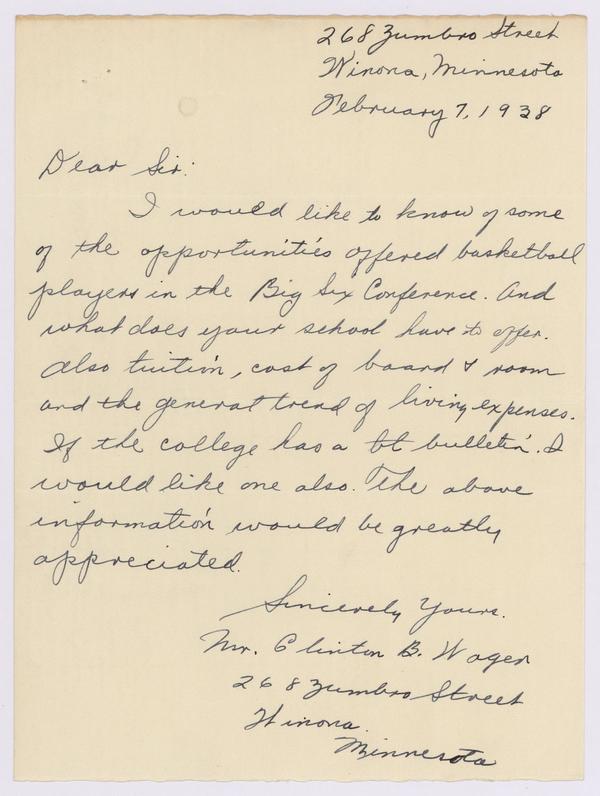 268 Zumbro Street
Winona, Minnesota
February 7, 1938
Dear Sir:
I would like to know of some
of the opportunities offered basketball
players in the Big Six Conference. And
what does your school have to offer.
Also tuition, cost of board & room
and the general trend of living expenses.
If the college has a bulletin. I
would like one also. The above
information would be greatly
appreciated.
Sincerely Yours.
Mr. Clinton B. Wager
268 Zumbro Street
Winona
Minnesota